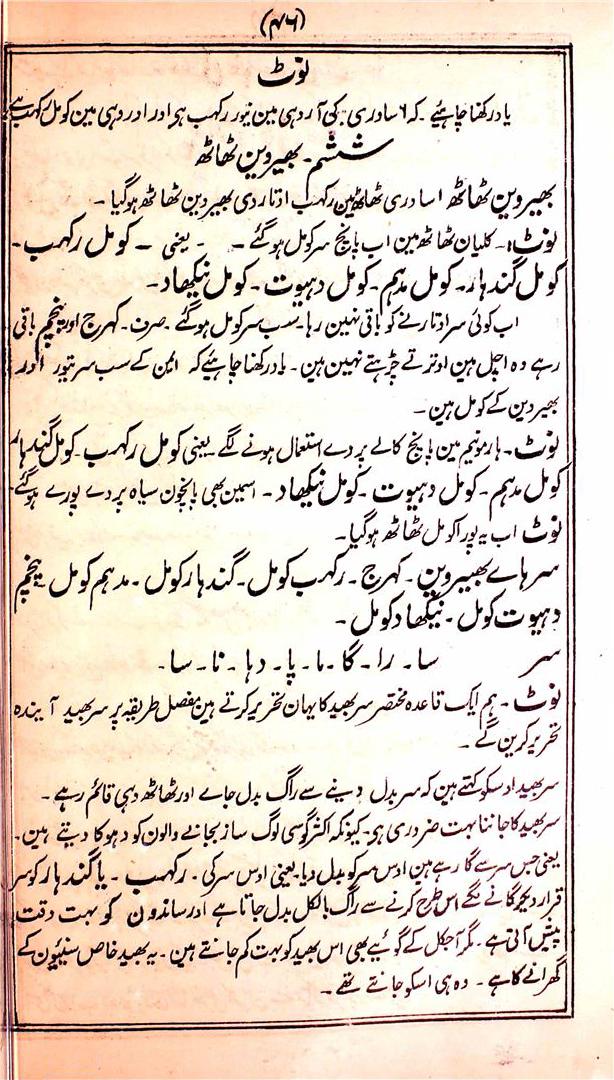 (۴۶)
نوٹ
یاد رکھنا چاہئیے ۔ کہ ۶ ساوری ۔ کی آروہی مین تیور رکھب ہی اور ادروہی مین کومل رکھب ہے
ششم ۔ بھیروین ٹھاٹھ
بھیروین ٹھاٹھ اسادری ٹھاٹھ مین رکھب اوتار دی بھیروین ٹھاٹھ ہوگیا ۔
نوٹ:۔ کلیان ٹھاٹھ مین اب پانچ سر کومل ہو گئے ۔ ۔ یعنی ۔ کومل رکھب ۔
کومل گندہار ۔ کومل مدہم ۔ کومل دہیوت ۔ کومل نیکھاد ۔
اب کوئی سر اوتارنے کو باقی نہین رہا ۔ سب سر کومل ہو گئے ۔ صرف ۔ کھرج اور پنچم باقی
رہے وہ اچل ہین اوترتے چڑہتے نہین ہین ۔ یاد رکھنا چاہئیے کہ ایمن کے سب سر تیور اور
بھیروین کے کومل ہین ۔
نوٹ ۔ ہارمونیم مین پانچ کالے پردے استعمال ہونے لگے ۔ یعنی کومل رکھب ۔ کومل گندہار
کومل مدہم ۔ کومل دہیوت ۔ کومل نیکھاد ۔ اسمین بھی پانچون سیاہ پردے پورے ہوگئے ۔
نوٹ اب یہ پورا کومل ٹھاٹھ ہوگیا ۔
سرہاے بھیروین ۔ کھرج ۔ رکھب کومل ۔ گندہار کومل ۔ مدہم کومل پنچم
دہیوت کومل ۔ نیکھاد کومل ۔
سر سا ۔ را ۔ گا ۔ ما ۔ پا ۔ دہا ۔ نا ۔ سا ۔
نوٹ ۔ ہم ایک قاعدہ مختصر سربھید کا یہان تحریر کرتے ہین مفصل طریقہ پر سربھید آیندہ
تحریر کرین گے ۔
سربھید اوسکو کہتے ہین کہ سر بدل دینے سے راگ بدل جاے اور ٹھاٹھ وہی قائم رہے ۔
سربھید کا جاننا بہت ضروری ہی ۔ کیونکہ اکثر گوسی لوگ ساز بجانے والون کو دہوکا دیتے ہین ۔
یعنی جس سر سے گا رہے ہین اوس سر کو بدل دیا ۔ یعنی اوس سر کی ۔ رکھب ۔ یا گندہار کو سر
قرار دیکر گانے لگے اس طرح کرنے سے راگ بالکل بدل جاتا ہے اور سازندون کو بہت دقت
پیش آتی ہے ۔ مگر آجکل کے گویے بھی اس بھید کو بہت کم جانتے ہین ۔ یہ بھید خاص سینیون کے
گھرانے کا ہے ۔ وہ ہی اسکو جانتے تھے ۔